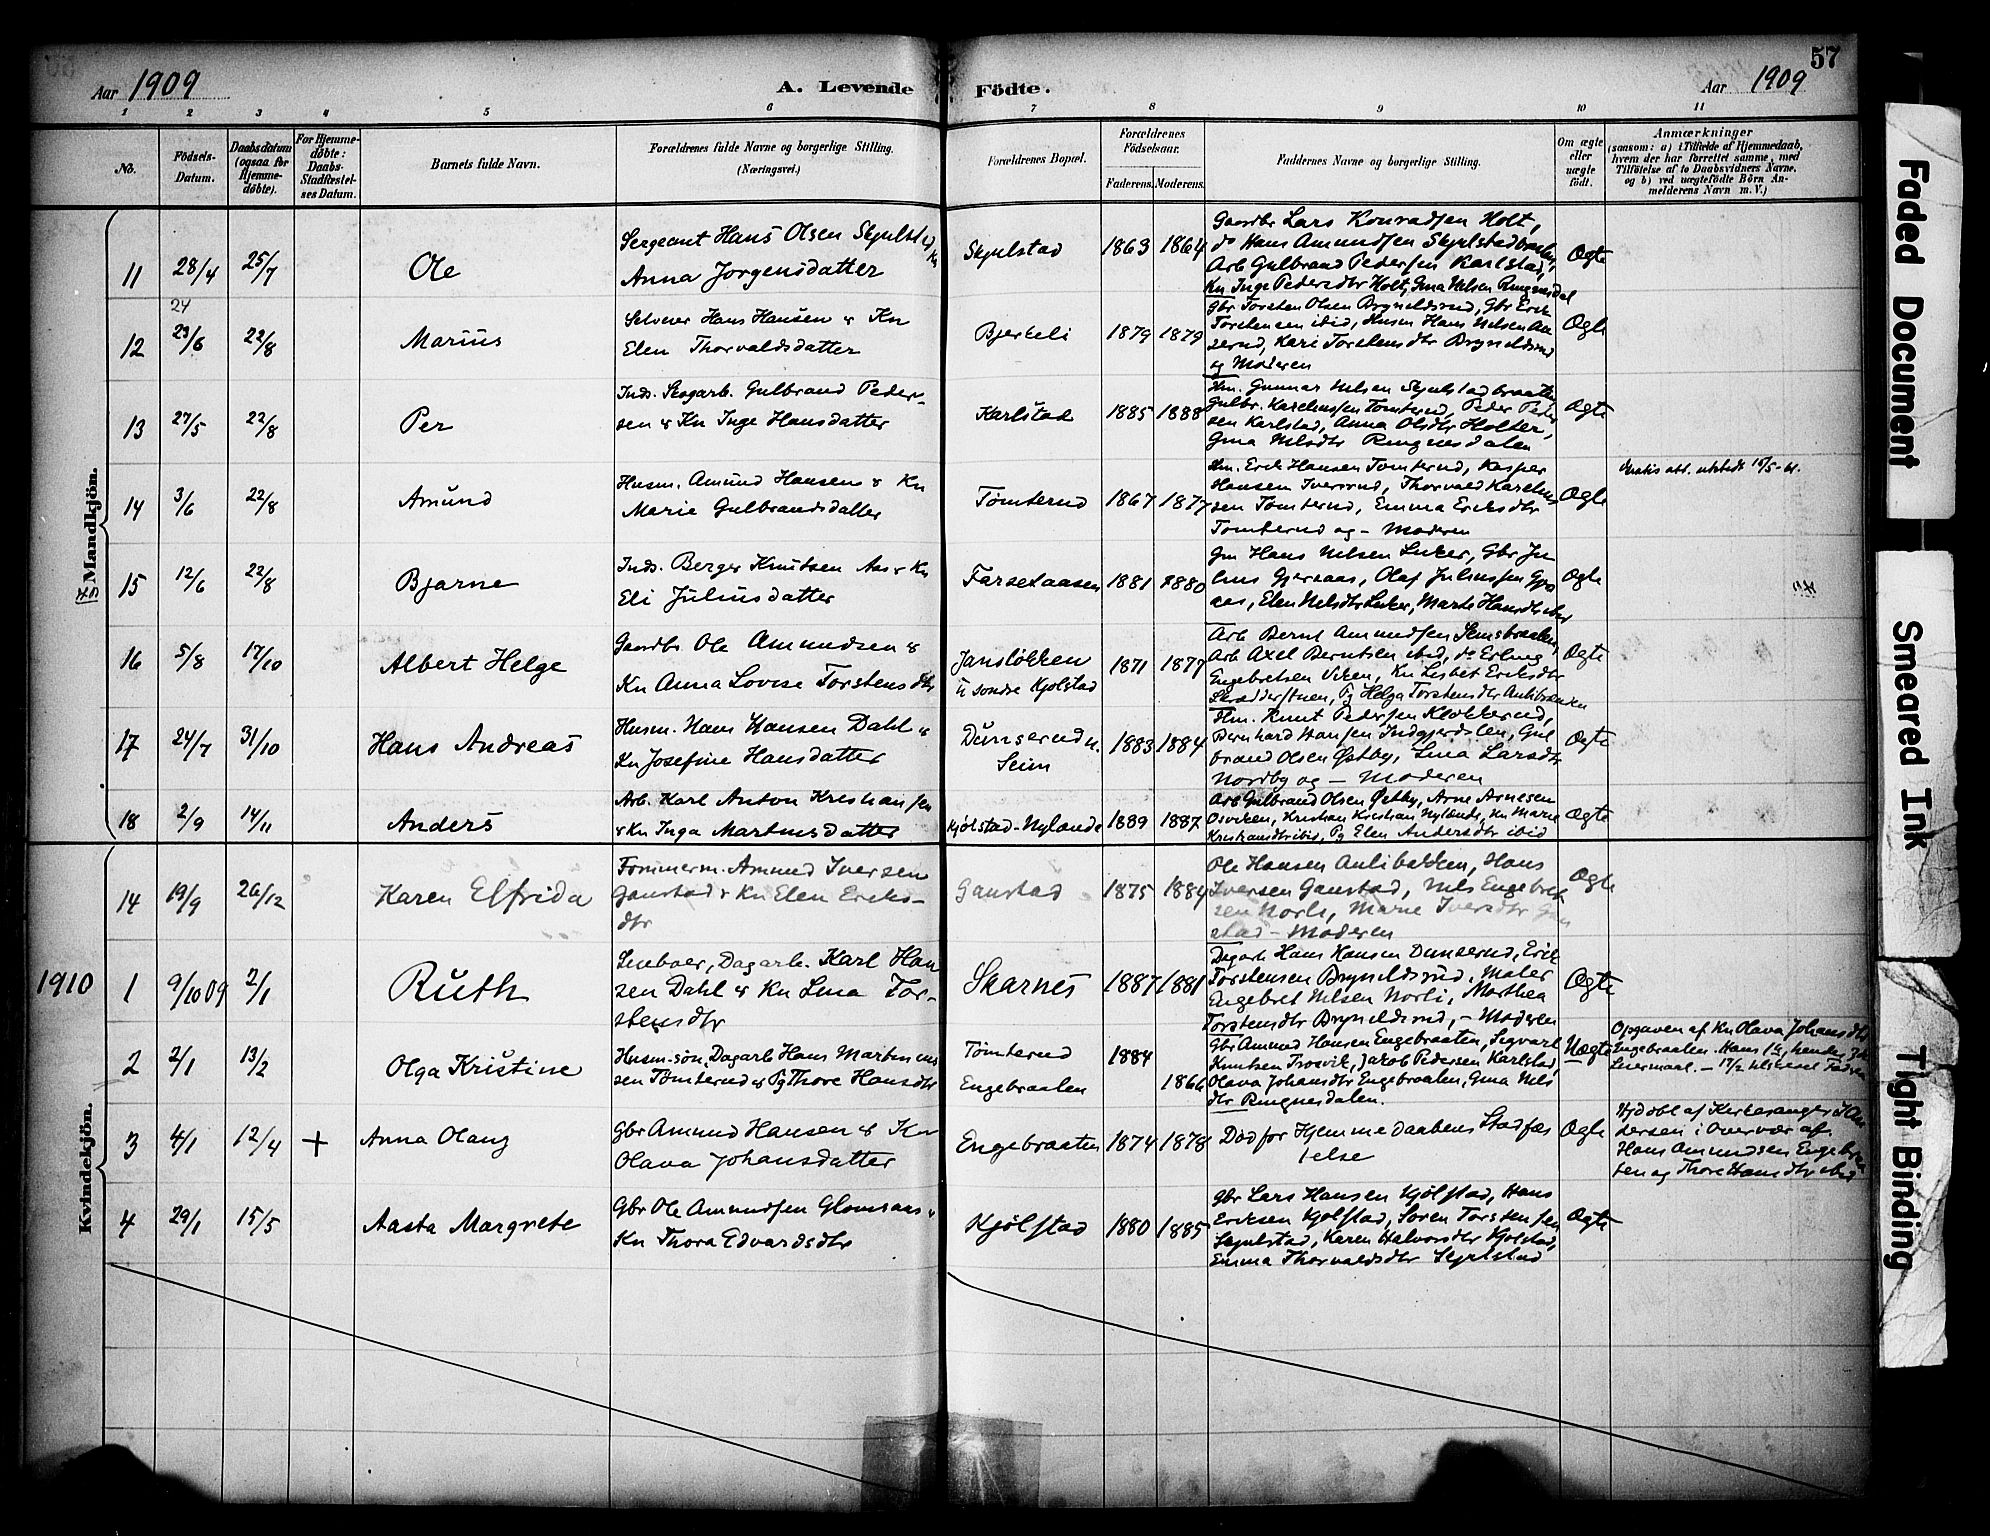 57
Aar 1909
A. Levende Födte.
Aar 1909
1 2 3 4 5 6 7 8 9 10 11
No.
Födsels-Datum.
Daabsdatum (ogsaa for Hjemme-döbte).
For Hjemme-döbte: Daabs-Stadfæstel-ses Datum.
Barnets fulde Navn.
Forældrenes fulde Navne og borgerlige Stilling.
(Næringsvei.)
Forældrenes Bopæl.
Forældrenes Födselsaar.
Faderens. Moderens.
Faddernes Navne og borgerlige Stilling.
Om ægte eller uægte födt.
Anmærkninger
(saasom: a) i Tilfælde af Hjemmedaab,
hvem der har forrettet samme, med
Tilföielse af to Daabsvidners Navne,
og b) ved uægtefödte Börn An-
melderens Navn m. V.)
Mandkjön.
11 28/4 25/7 Ole
Sergeant Hans Olsen
Anna Jorgensdatter
Skjulstad 1863 1864
Gaardbr Lars Konradsen Holt,
do Hans Amundsen
Arb Gulbrand Pedersen Karlstad,
Kn Inge Pedersdtr Holt, Gina Nilsen
Ægte
24
12 23/6 22/8 Marius
Selveier Hans Hansen & Kn
Elen Thorvaldsdatter
Bjerkeli 1879 1879
Gbr Torsten Olsen Bryneldsrud, Gbr Erik
Torstensen ibid, Husm Hans Nilsen
Kari Torstensdtr Bryneldsrud
og Moderen
Ægte
13 27/5 22/8 Per
Inds. Skogarb. Gulbrand Peder-
sen & Kn Inge Hansdatter
Karlstad 1885 1888
Hm. Gunnar Nilsen Skjulstadbraaten,
Gulbr. Tomterud, Peder Peder
sen Karlstad, Anna Olsdtr Holter,
Gina Nilsdtr Ringnesdalen
Ægte
14 3/6 22/8 Amund
Husm. Amund Hansen & Kn
Marie Gulbrandsdatter
Tömterud 1867 1877
Hm. Erik Hansen Tomterud, Kasper
Hansen Iversrud, Thorvald
sen Tomterud, Emma Eriksdtr
Tomterud og - Moderen
Ægte
Gratis att. utstedt 15/5-61.
15 12/6 22/8 Bjarne
Inds. Berger Knutsen Aas & Kn
Eli Juliusdatter
Farsetaasen 1881 1880
Gm Hans Nilsen Luker, Gbr Ju
lius Gjersaas, Olaf Juliussen
aas, Elen Nilsdtr Luker,
Ægte
16 5/8 17/10 Albert Helge
Gaardbr. Ole Amundsen &
Kn Anna Lovise Torstensdtr
Jansløkken
u sondre Kjolstad
1871 1877
Arb Bernt Amundsen
Arb Axel Berntsen ibid, do Erling
Engebretsen Viken, Kn Lisbet Eriksdtr
Pg Helga Torstensdtr
Ægte
17 24/7 31/10 Hans Andreas
Husm. Hans Hansen Dahl &
Kn Josefine Hansdatter
Dunserud u.
Seim
1883 1884
Hm. Knut Pedersen Klokkerud,
Bernhard Hansen Indgjerdslen, Gul
brand Olsen Østby, Lina Larsdtr
Nordby og - Moderen
Ægte
18 2/9 14/11 Anders
Arb. Karl Anton Kristiansen
& Kn Inga Martinsdatter
Kjölstad-Nylænde 1889 1887
Arb Gulbrand Olsen Østby, Arne Arnesen
Osviken, Kristian Kristian Nylænde, Kn Marie
Kristiansdtr ibid, Pg Elen Andersdtr ibid
Ægte
Kvindekjön.
14 19/9 26/12 Karen Elfrida
Tommerm. Amund Iversen
Ganstad & Kn Elen Eriks-
dtr
Ganstad 1875 1884
Ole Hansen Hans
Iversen Ganstad, Nils Engebret
sen Norli, Marie Iversdtr Gan
stad - Moderen
Ægte
1910
1 9/10 09 2/1 Ruth
Dagarb. Karl Han
sen Dahl & Kn Lina Tor-
stensdtr
Skarnes 1887 1881
Dagarb Hans Hansen Dunserud, Erik
Torstensen Bryneldsrud, Maler
Engebret Nilsen Norli, Mathea
Torstensdtr Bryneldsrud, - Moderen
Ægte
2 2/1 13/2 Olga Kristine
Husm.søn, Dagarb Hans Martinius
sen Tömterud & Pg Thore Hansdtr
Tömterud
Engebraaten
1884
1866
Gbr Amund Hansen Engebraaten, Sigvart
Knutsen Trosvik, Jakob Pedersen Karlstad,
Olava Johansdtr Engebraaten, Gina Nils
dtr Ringnesdalen.
Uægte
Opgaven af Kn Olava Johansdtr
Engebraaten. Hans 1ste, hendes
Leiermaal. - 17/2
3 4/1 12/4 + Anna Olaug
Gbr Amund Hansen & Kn
Olava Johansdatter
Engebraaten 1874 1878
Död for Hjemmedaabens Stadfæs
telse
Ægte
Hjdöbt af Kirkesanger
i Overvær af
Hans Amundsen Engebraa
ten og Thore Hansdtr ibid
4 29/1 15/5 Aasta Margrete
Gbr Ole Amundsen Glomsaas &
Kn Thora Edvardsdtr
Kjölstad 1880 1885
Gbr Lars Hansen Kjölstad, Hans
Eriksen Kjolstad, Soren Torstensen
Skjulstad, Karen Halvorsdtr Kjolstad,
Emma Thorvaldsdtr Skjulstad
Ægte
Faded Document
Smeared Ink
Tight Binding